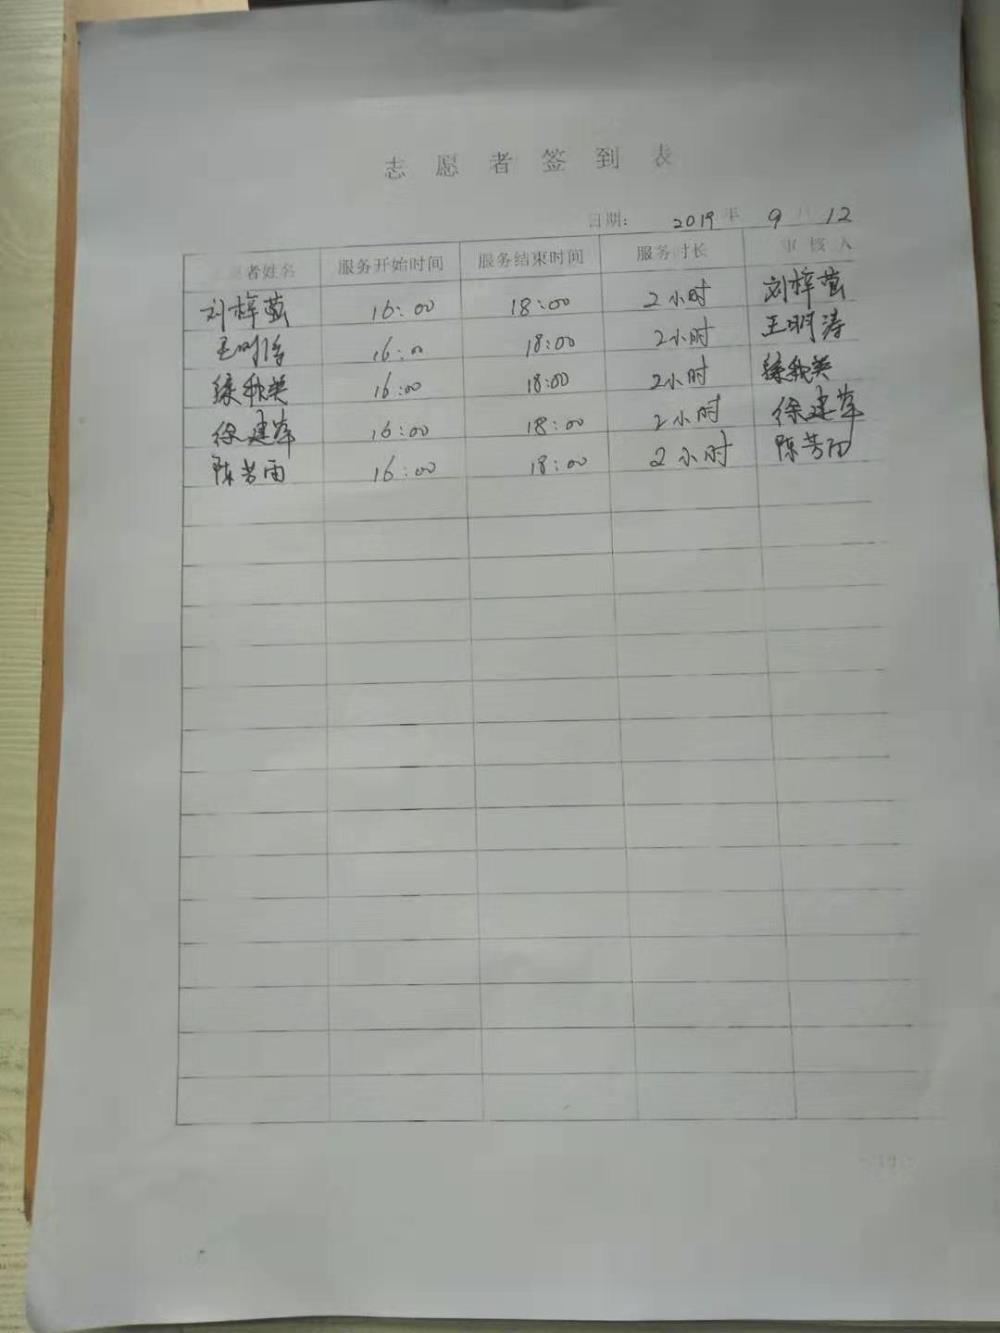 志愿者签到表
日期： 2019 年 9 月 12
愿者姓名 服务开始时间 服务结束时间 服务时长 审核人
刘梓萤 16:00 18:00 2小时 刘梓萤
王明涛 16:00 18:00 2小时 王明涛
16:00 18:00 2小时
徐建萍 16:00 18:00 2小时 徐建萍
陈芳雨 16:00 18:00 2小时 陈芳雨